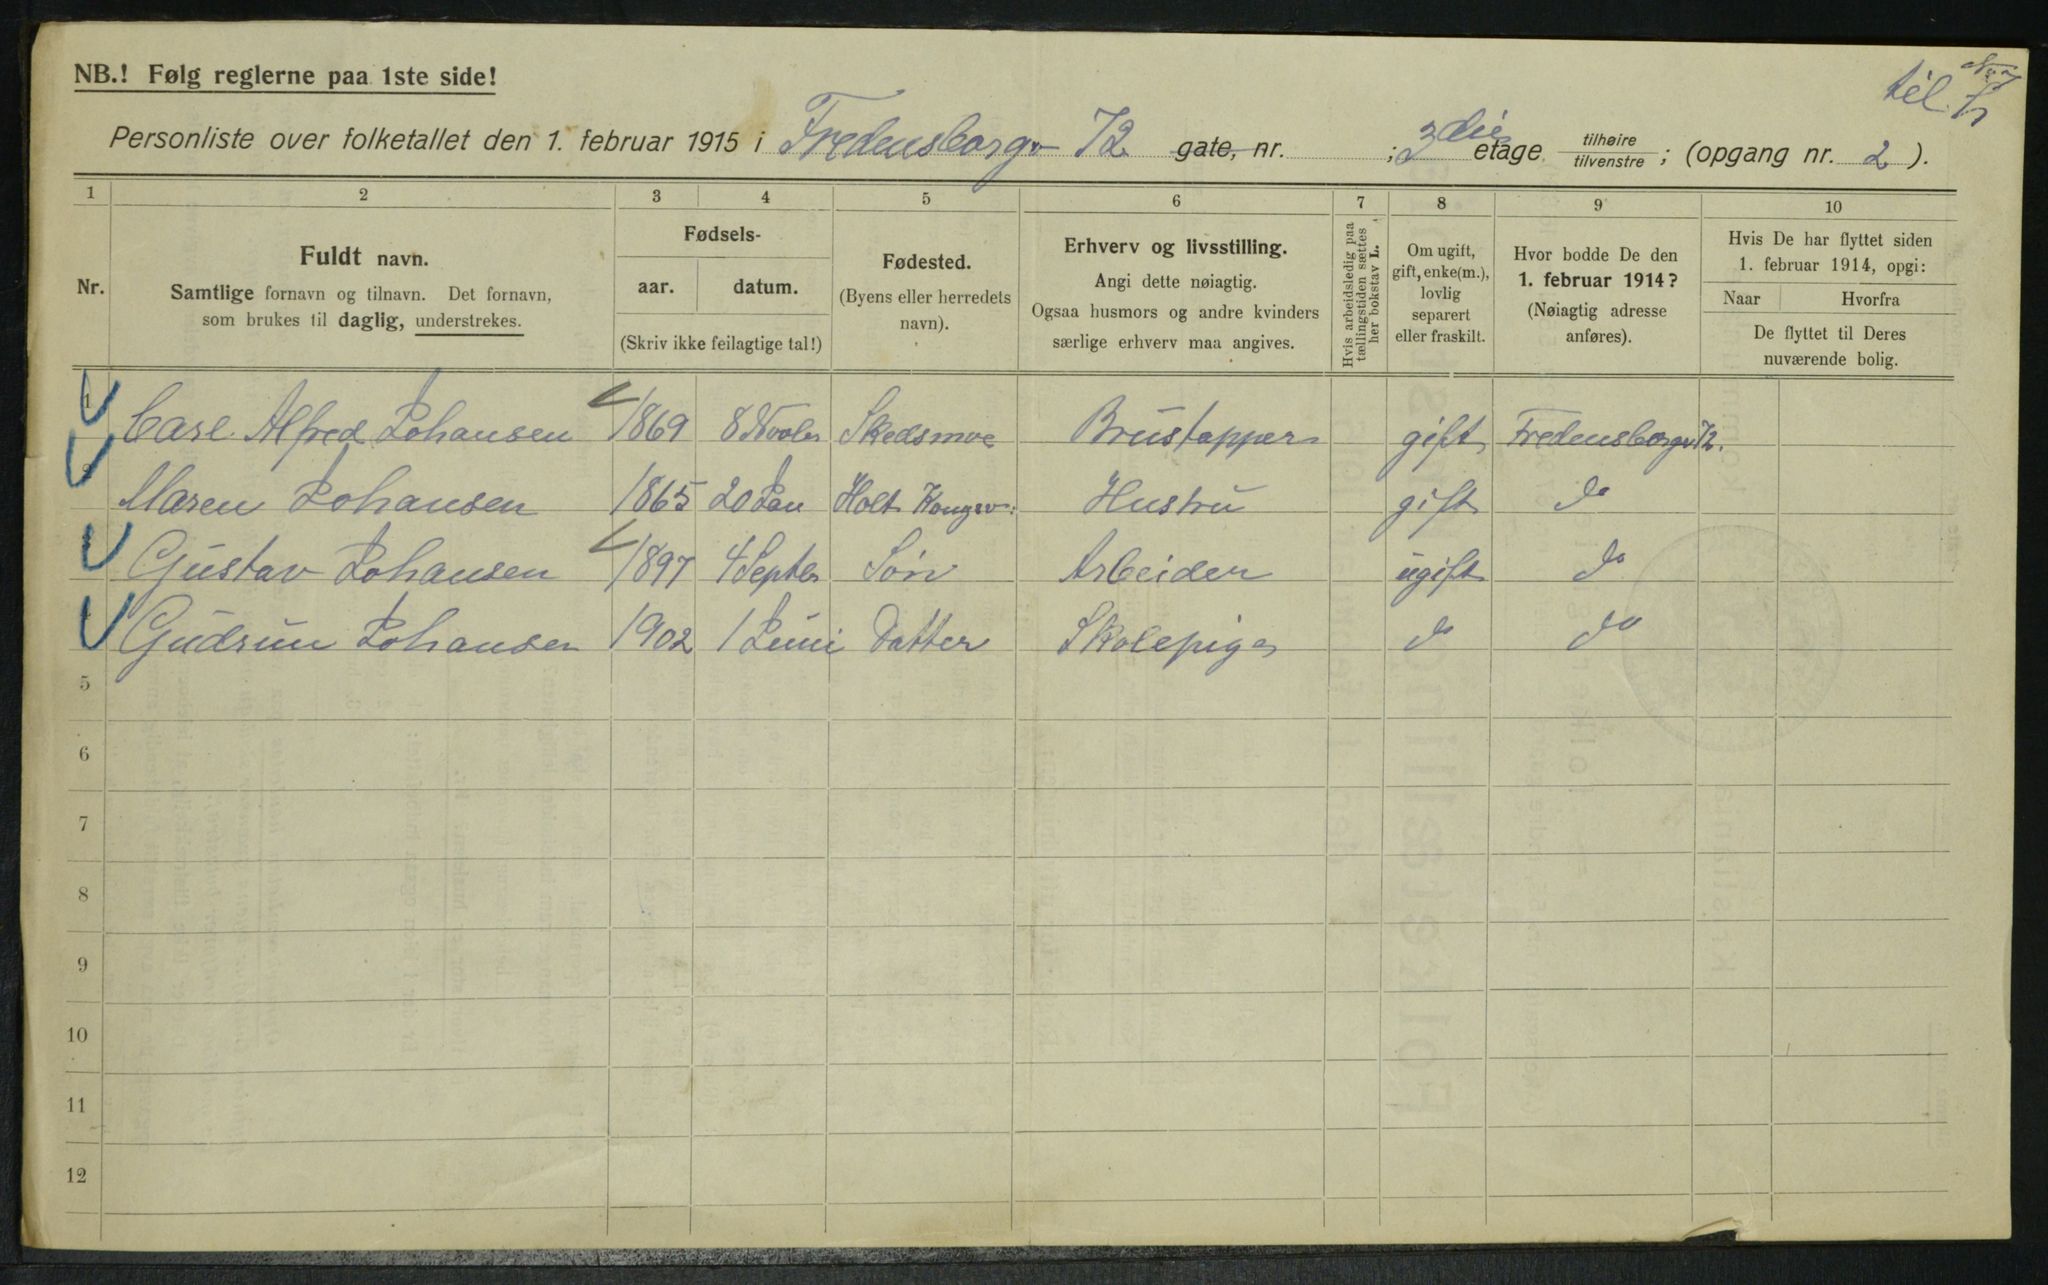 NB.! Følg reglerne paa 1ste side!
til
Personliste over folketallet den 1. februar 1915 i Fredensborgv 72 gate, nr. ; 3die etage tilhøire tilvenstre ; (opgang nr. 2 ).
1 2 3 4 5 6 7 8 9 10
Nr.
Fuldt navn.
Samtlige fornavn og tilnavn. Det fornavn,
som brukes til daglig, understrekes.
Fødsels-
aar. datum.
(Skriv ikke feilagtige tal!)
Fødested.
(Byens eller herredets
navn).
Erhverv og livsstilling.
Angi dette nøiagtig.
Ogsaa husmors og andre kvinders
særlige erhverv maa angives.
Hvis arbeidsledig paa
tællingstiden sættes
her bokstav L.
Om ugift,
gift, enke(m.),
lovlig
separert
eller fraskilt.
Hvor bodde De den
1. februar 1914?
(Nøiagtig adresse
anføres).
Hvis De har flyttet siden
1. februar 1914, opgi:
Naar Hvorfra
De flyttet til Deres
nuværende bolig.
1 Carl Alfred Johansen 1869 8 Novbr Skedsmoe Brustapper gift Fredensborgv 72.
2 Maren Johansen 1865 20 Jan Holt Kongsv: Hustru gift do
Gustav Johansen 1897 4 Septbr Søn Arbeider ugift do
Gudrun Johansen 1902 1 Juni Datter Skolepige do do
5
6
7
8
9
10
11
12